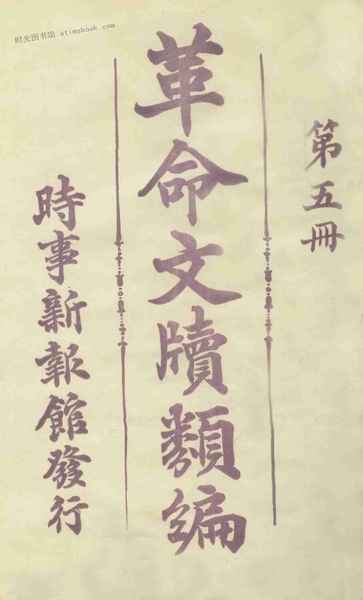 时光图书馆 stimebook.com
第五冊
革命文牘類編
時事新報館發行